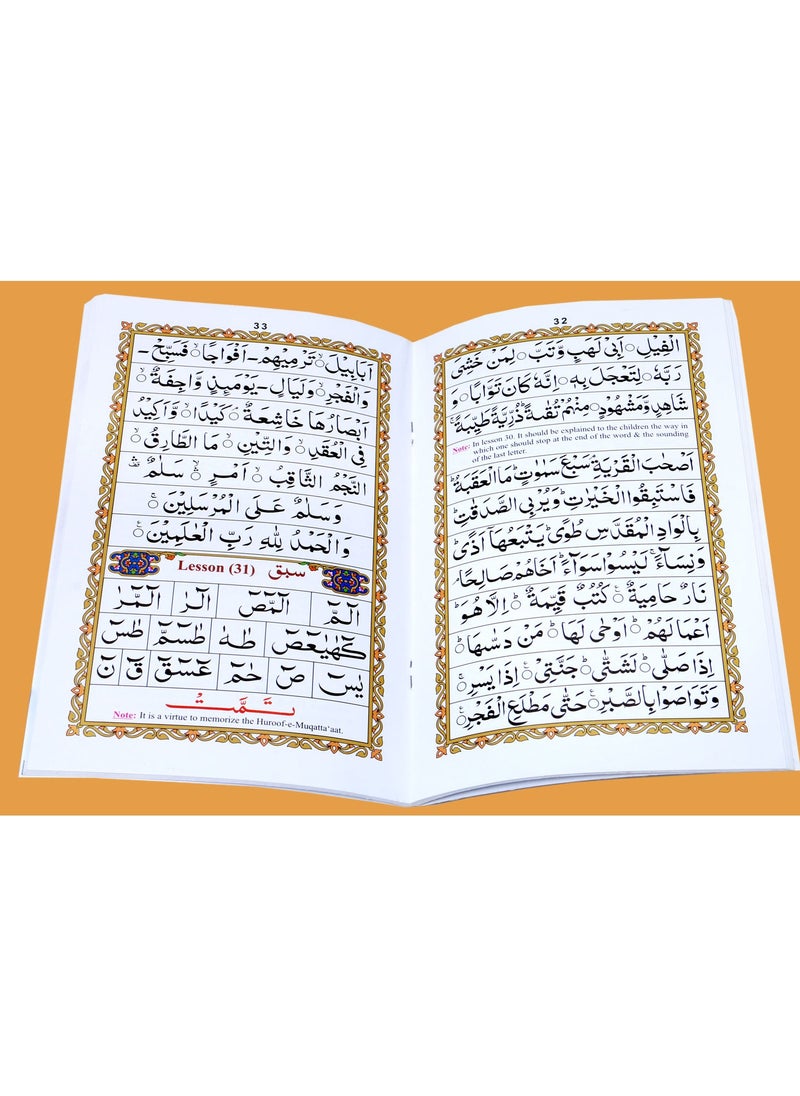 32
الْفِيْلِ ۝ اَبِيْ لَهَبٍ وَّتَبَّ ۝ لِمَنْ خَشِيَ
رَبَّهٗ ۝ لِتَعْجَلَ بِهٖ ۝ اِنَّهٗ كَانَ تَوَّابًا ۝ وَ
شَاهِدٍ وَّمَشْهُوْدٍ ۝ مِنْهُمْ تُقٰىةً ذُرِّيَّةً طَيِّبَةً ۚ
Note: In lesson 30. It should be explained to the children the way in
which one should stop at the end of the word & the sounding
of the last letter.
اَصْحٰبَ الْقَرْيَةِ ۘ سَبْعَ سَمٰوٰتٍ ؕ مَا الْعَقَبَةُ ؕ
فَاسْتَبِقُوا الْخَيْرٰتِ ؕ وَيُرْبِي الصَّدَقٰتِ ؕ
بِالْوَادِ الْمُقَدَّسِ طُوًى ؕ يَتْبَعُهَاۤ اَذًى ؕ
وَنِسَآءً ۚ لَيْسُوْا سَوَآءً ؕ اَخَاهُمْ صَالِحًا ۘ
نَارٌ حَامِيَةٌ ۝ كُتُبٌ قَيِّمَةٌ ۝ اِلَّا هُوَ ؕ
اَعْمَالَهُمْ ۝ اَوْحٰى لَهَا ۝ مَنْ دَسّٰىهَا ۝
اِذَا صَلّٰى ۝ لَشَتّٰى ۝ جَنَّتِيْ ۝ اِذَا يَسْرِ ۝
وَتَوَاصَوْا بِالصَّبْرِ ۝ حَتّٰى مَطْلَعِ الْفَجْرِ ۝
33
اَبَابِيْلَ ۝ تَرْمِيْهِمْ - اَفْوَاجًا ۝ فَسَبِّحْ -
وَالْفَجْرِ ۝ وَلَيَالٍ - يَوْمَئِذٍ وَّاجِفَةٌ ۝
اَبْصَارُهَا خَاشِعَةٌ ۝ كَيْدًا ۝ وَّاَكِيْدُ
فِي الْعُقَدِ ۝ وَالتِّيْنِ ۝ مَا الطَّارِقُ ۝
النَّجْمُ الثَّاقِبُ ۝ اَمْرٍ ۝ سَلٰمٌ
وَسَلٰمٌ عَلَى الْمُرْسَلِيْنَ ۝
وَالْحَمْدُ لِلّٰهِ رَبِّ الْعٰلَمِيْنَ ۝
Lesson (31) سبق
الٓمّٓ الٓمّٓصٓ الٓرٰ الٓمّٓرٰ
كٓهٰيٰعٓصٓ طٰهٰ طٰسٓمّٓ طٰسٓ
يٰسٓ صٓ حٰمٓ عٓسٓقٓ قٓ نٓ
تَمَّتْ
Note: It is a virtue to memorize the Huroof-e-Muqatta'aat.